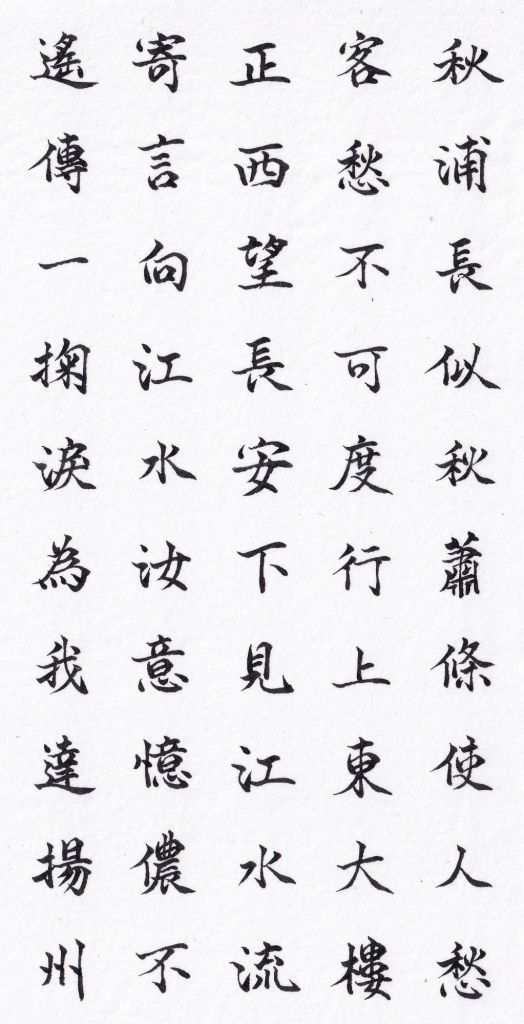 秋浦長似秋蕭條使人愁
客愁不可度行上東大樓
正西望長安下見江水流
寄言向江水汝意憶儂不
遙傳一掬淚為我達揚州